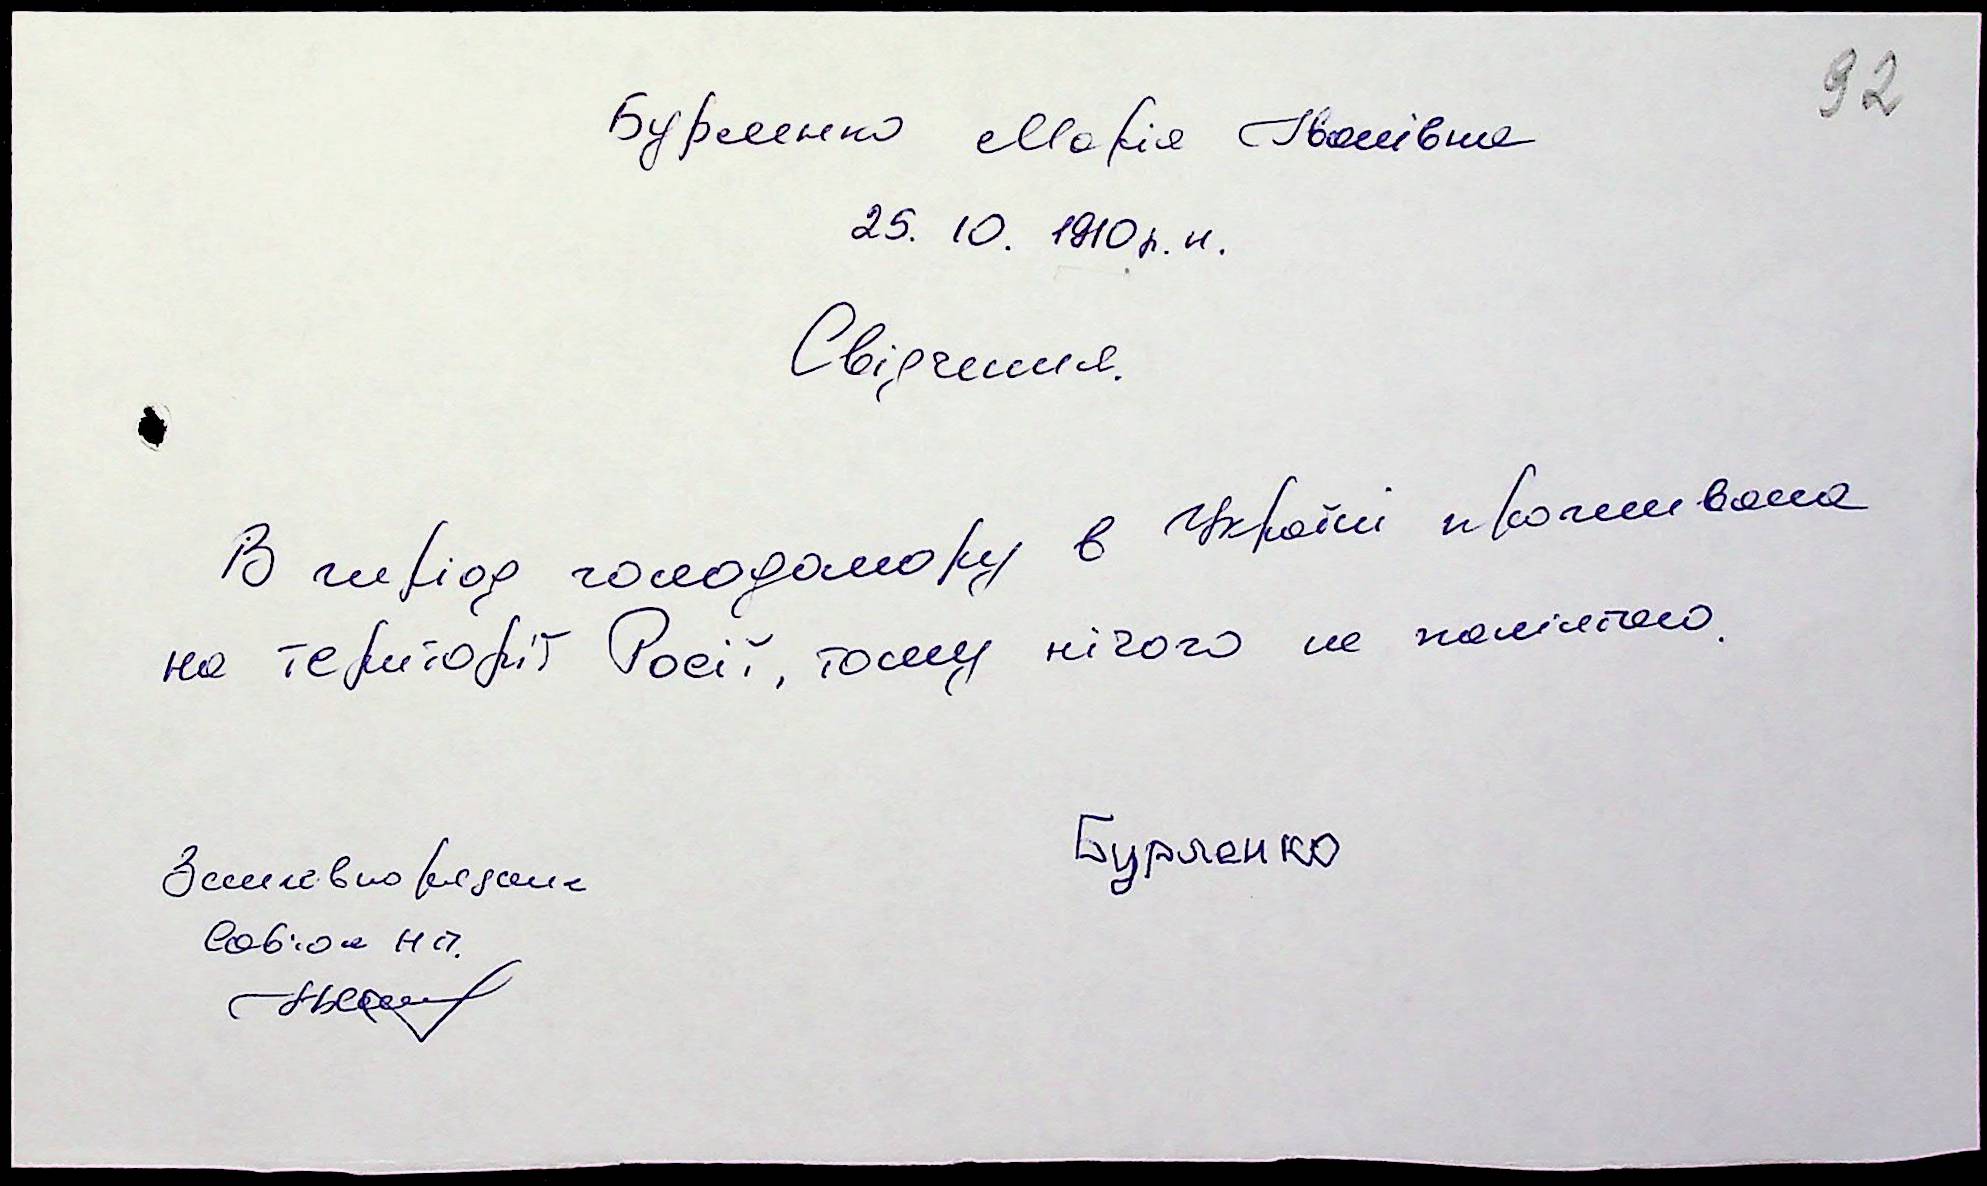 92
Бурленко Марія Іванівна
25. 10. 1910 р. н.
Свідчення.
В період голодомору в Україні проживала
на території Росії, тому нічого не памʼятаю.
Бурленко
Записів впорядкил